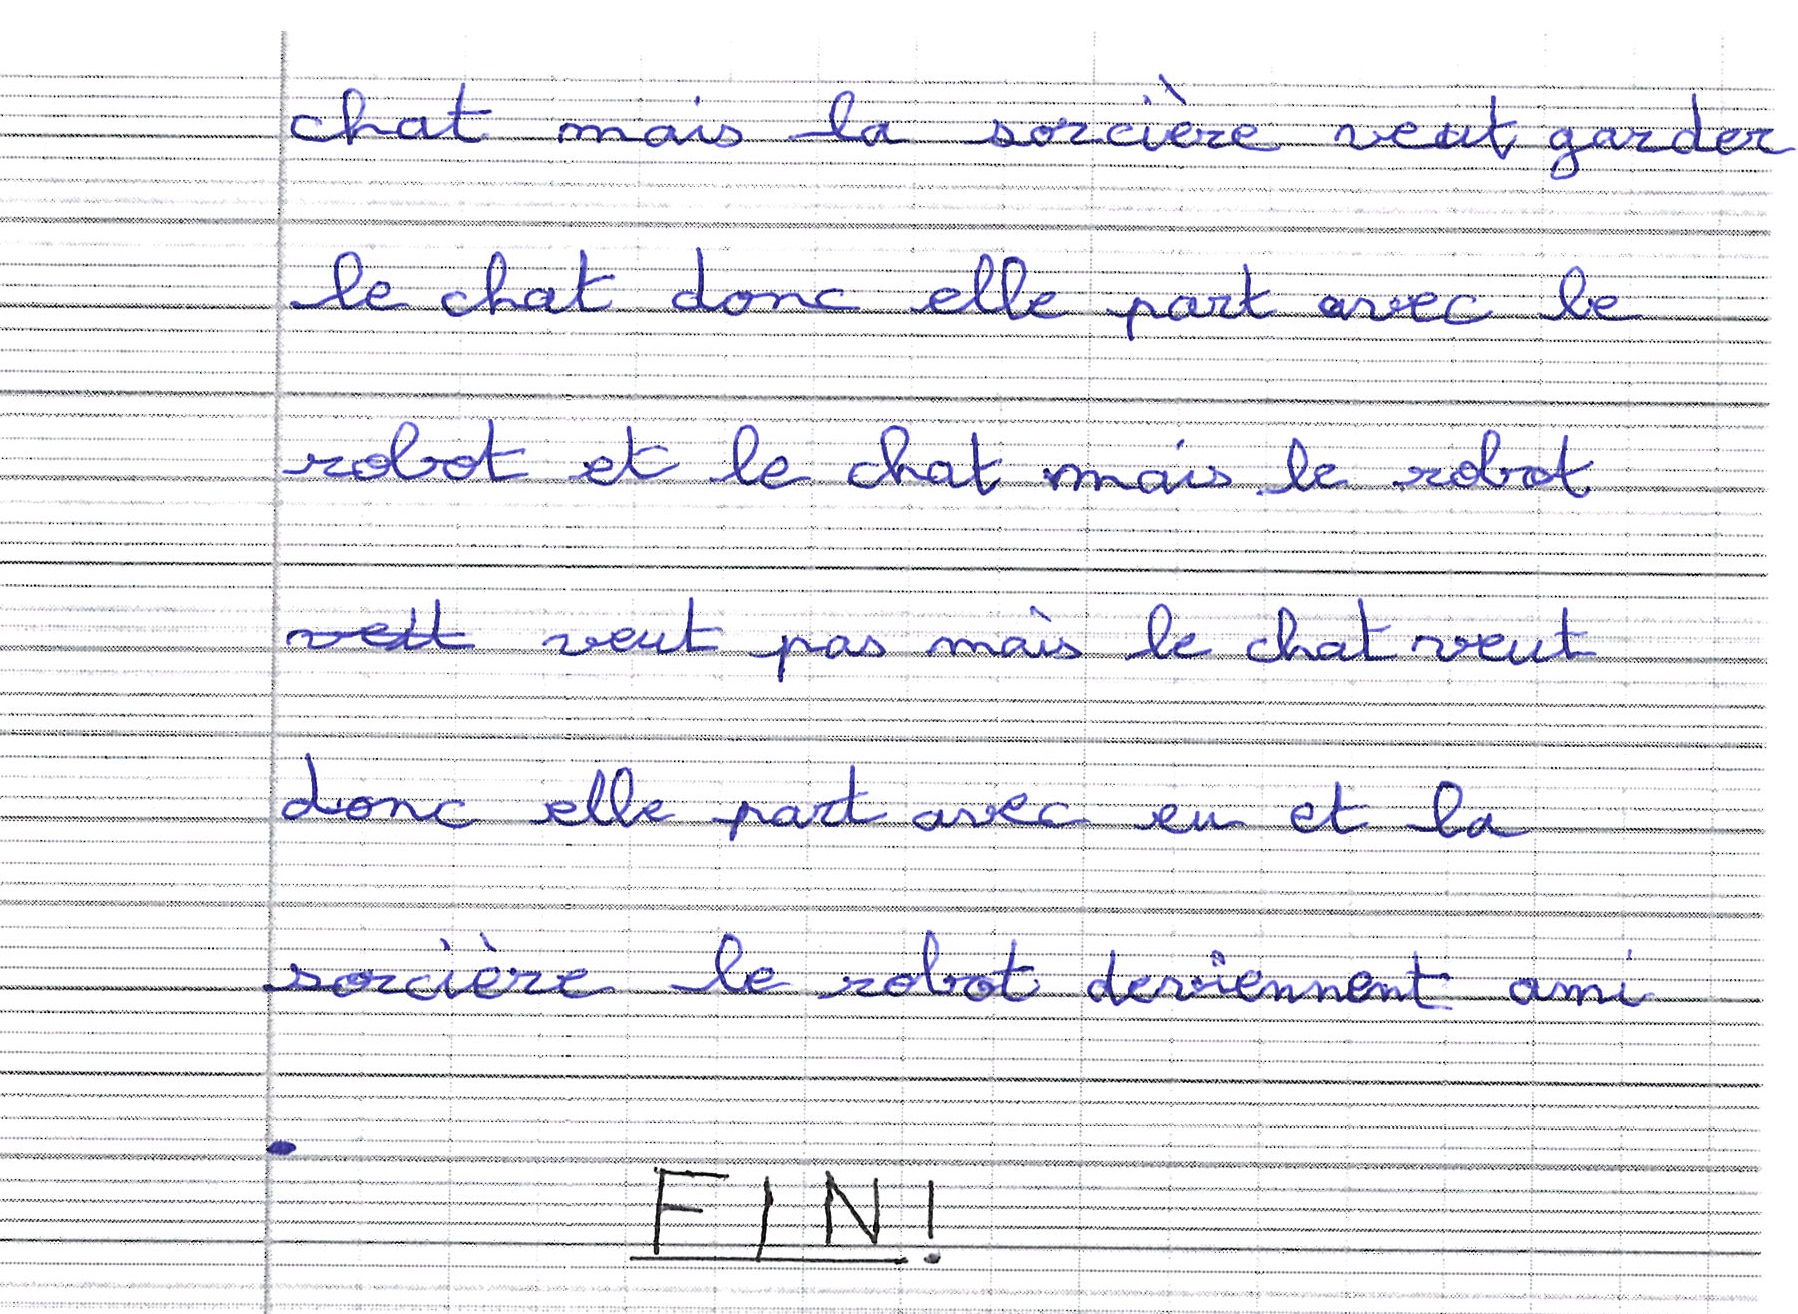 chat mais la sorcière veut garder
le chat donc elle part avec le
robot et le chat mais le robot
veut pas mais le chat veut
donc elle part avec eu et la
sorcière le robot deviennent ami
.
FIN!